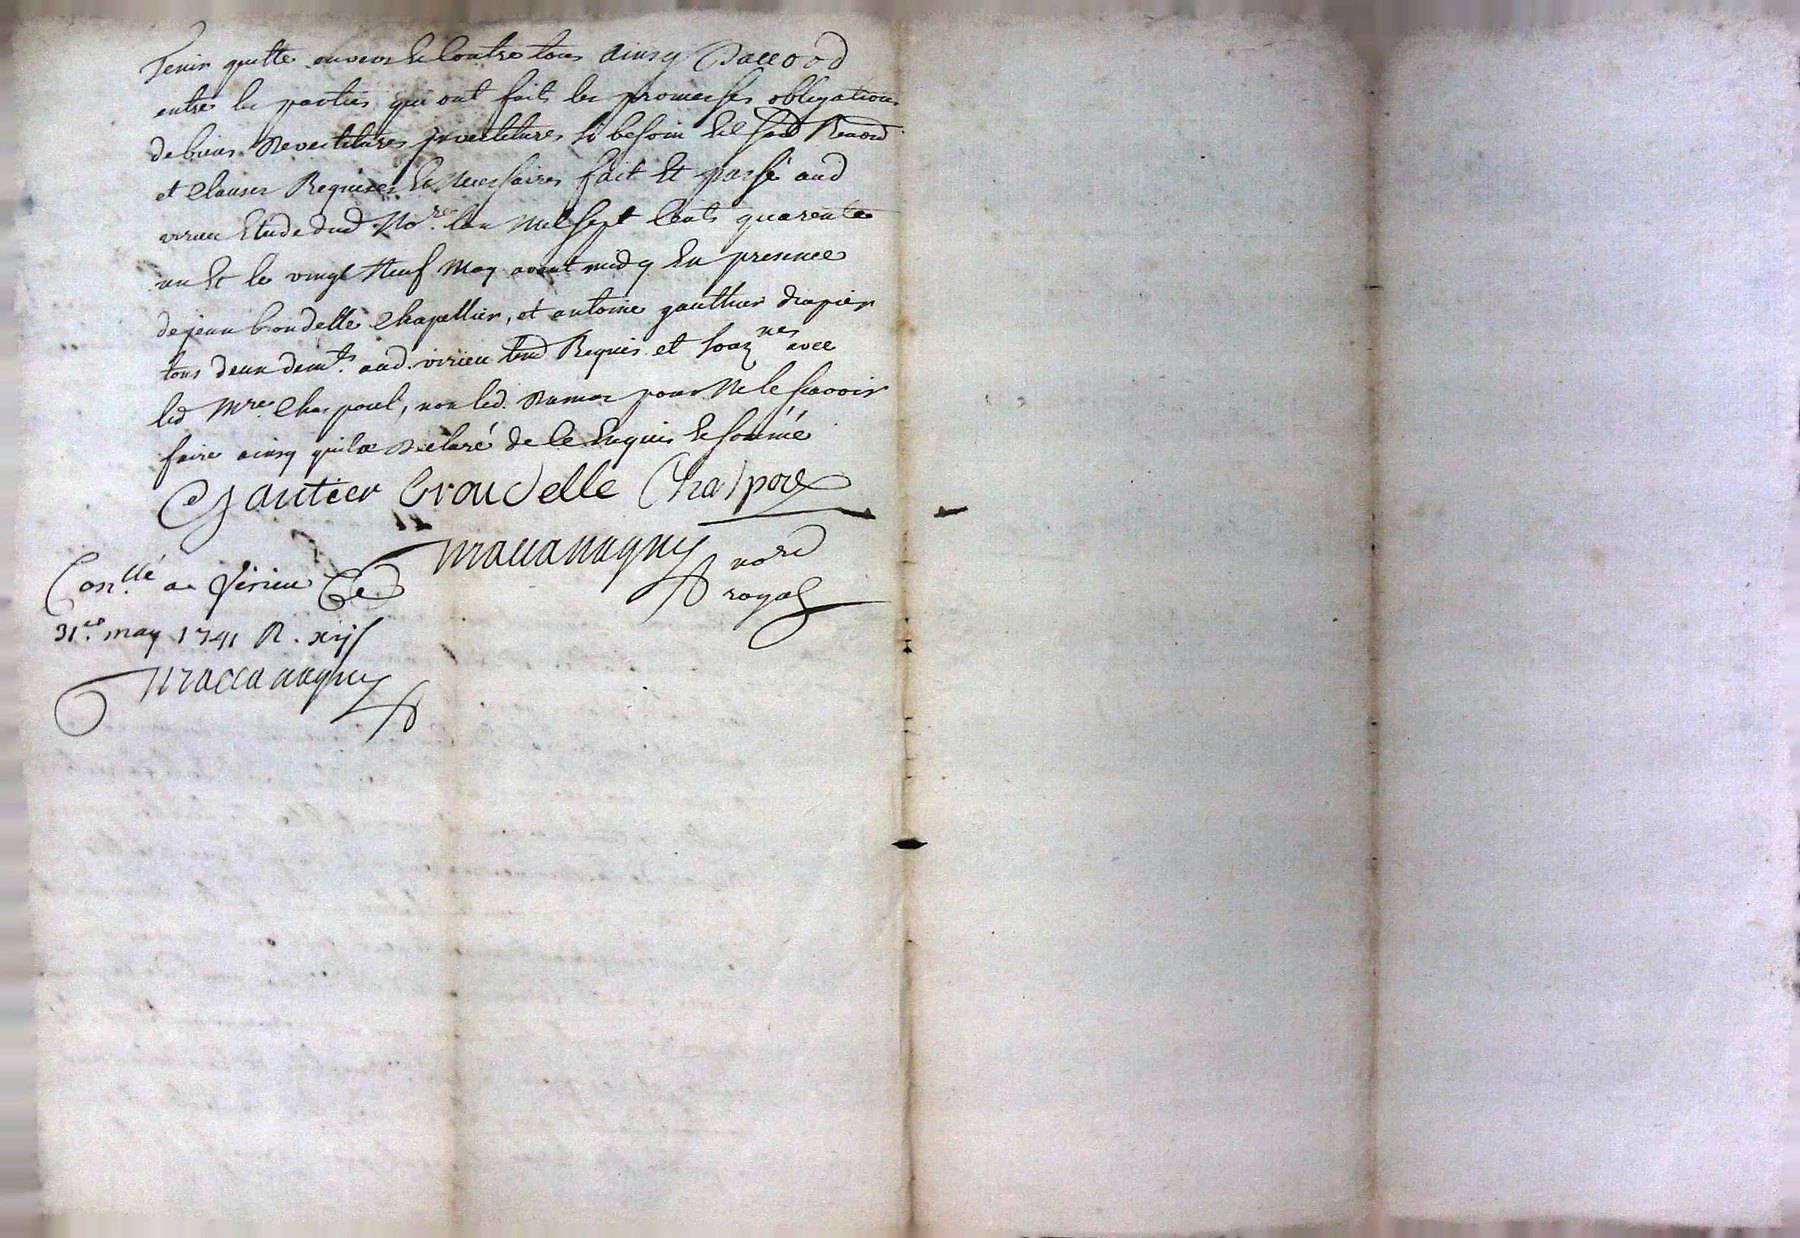 Tenir quitte envers et contre tous ainsy D'accord
entre les parties qui ont fait les promesses obligations
de biens Devestitures investitures si besoin
et clauses Requises et Necessaires fait et passé aud
virieu Etude dud No.re lan Mil sept Cents quarente
un et le vingt Neuf May avant midy En presence
de jean brondelle Chapellier, et antoine gauthier drapier
tous deux dem.ts aud. virieu tem Requis et souz.nes avec
led M.re Chaspoul, non led. pour Ne le scavoir
faire ainsy quil a Declaré de ce Enquis et sommé
Gautier brondelle Chaspoul
Maccanagny no.re
royal
Con.llé a Virieu Ce
31.e may 1741 R. xij s
Maccanagny